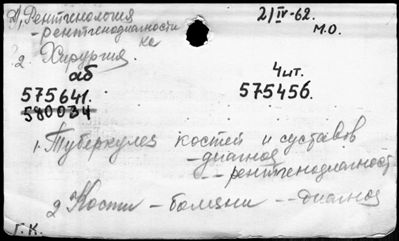 1) Рентгенология
2/IV-62.
М.О.
- рентгенодиагностика
2. Хирургия.
аб
575641.
580034
4 шт.
575456.
1. Туберкулез костей и суставов
- диагноз
-- рентгенодиагност
2 Кости - болезни -- диагноз
Г.К.